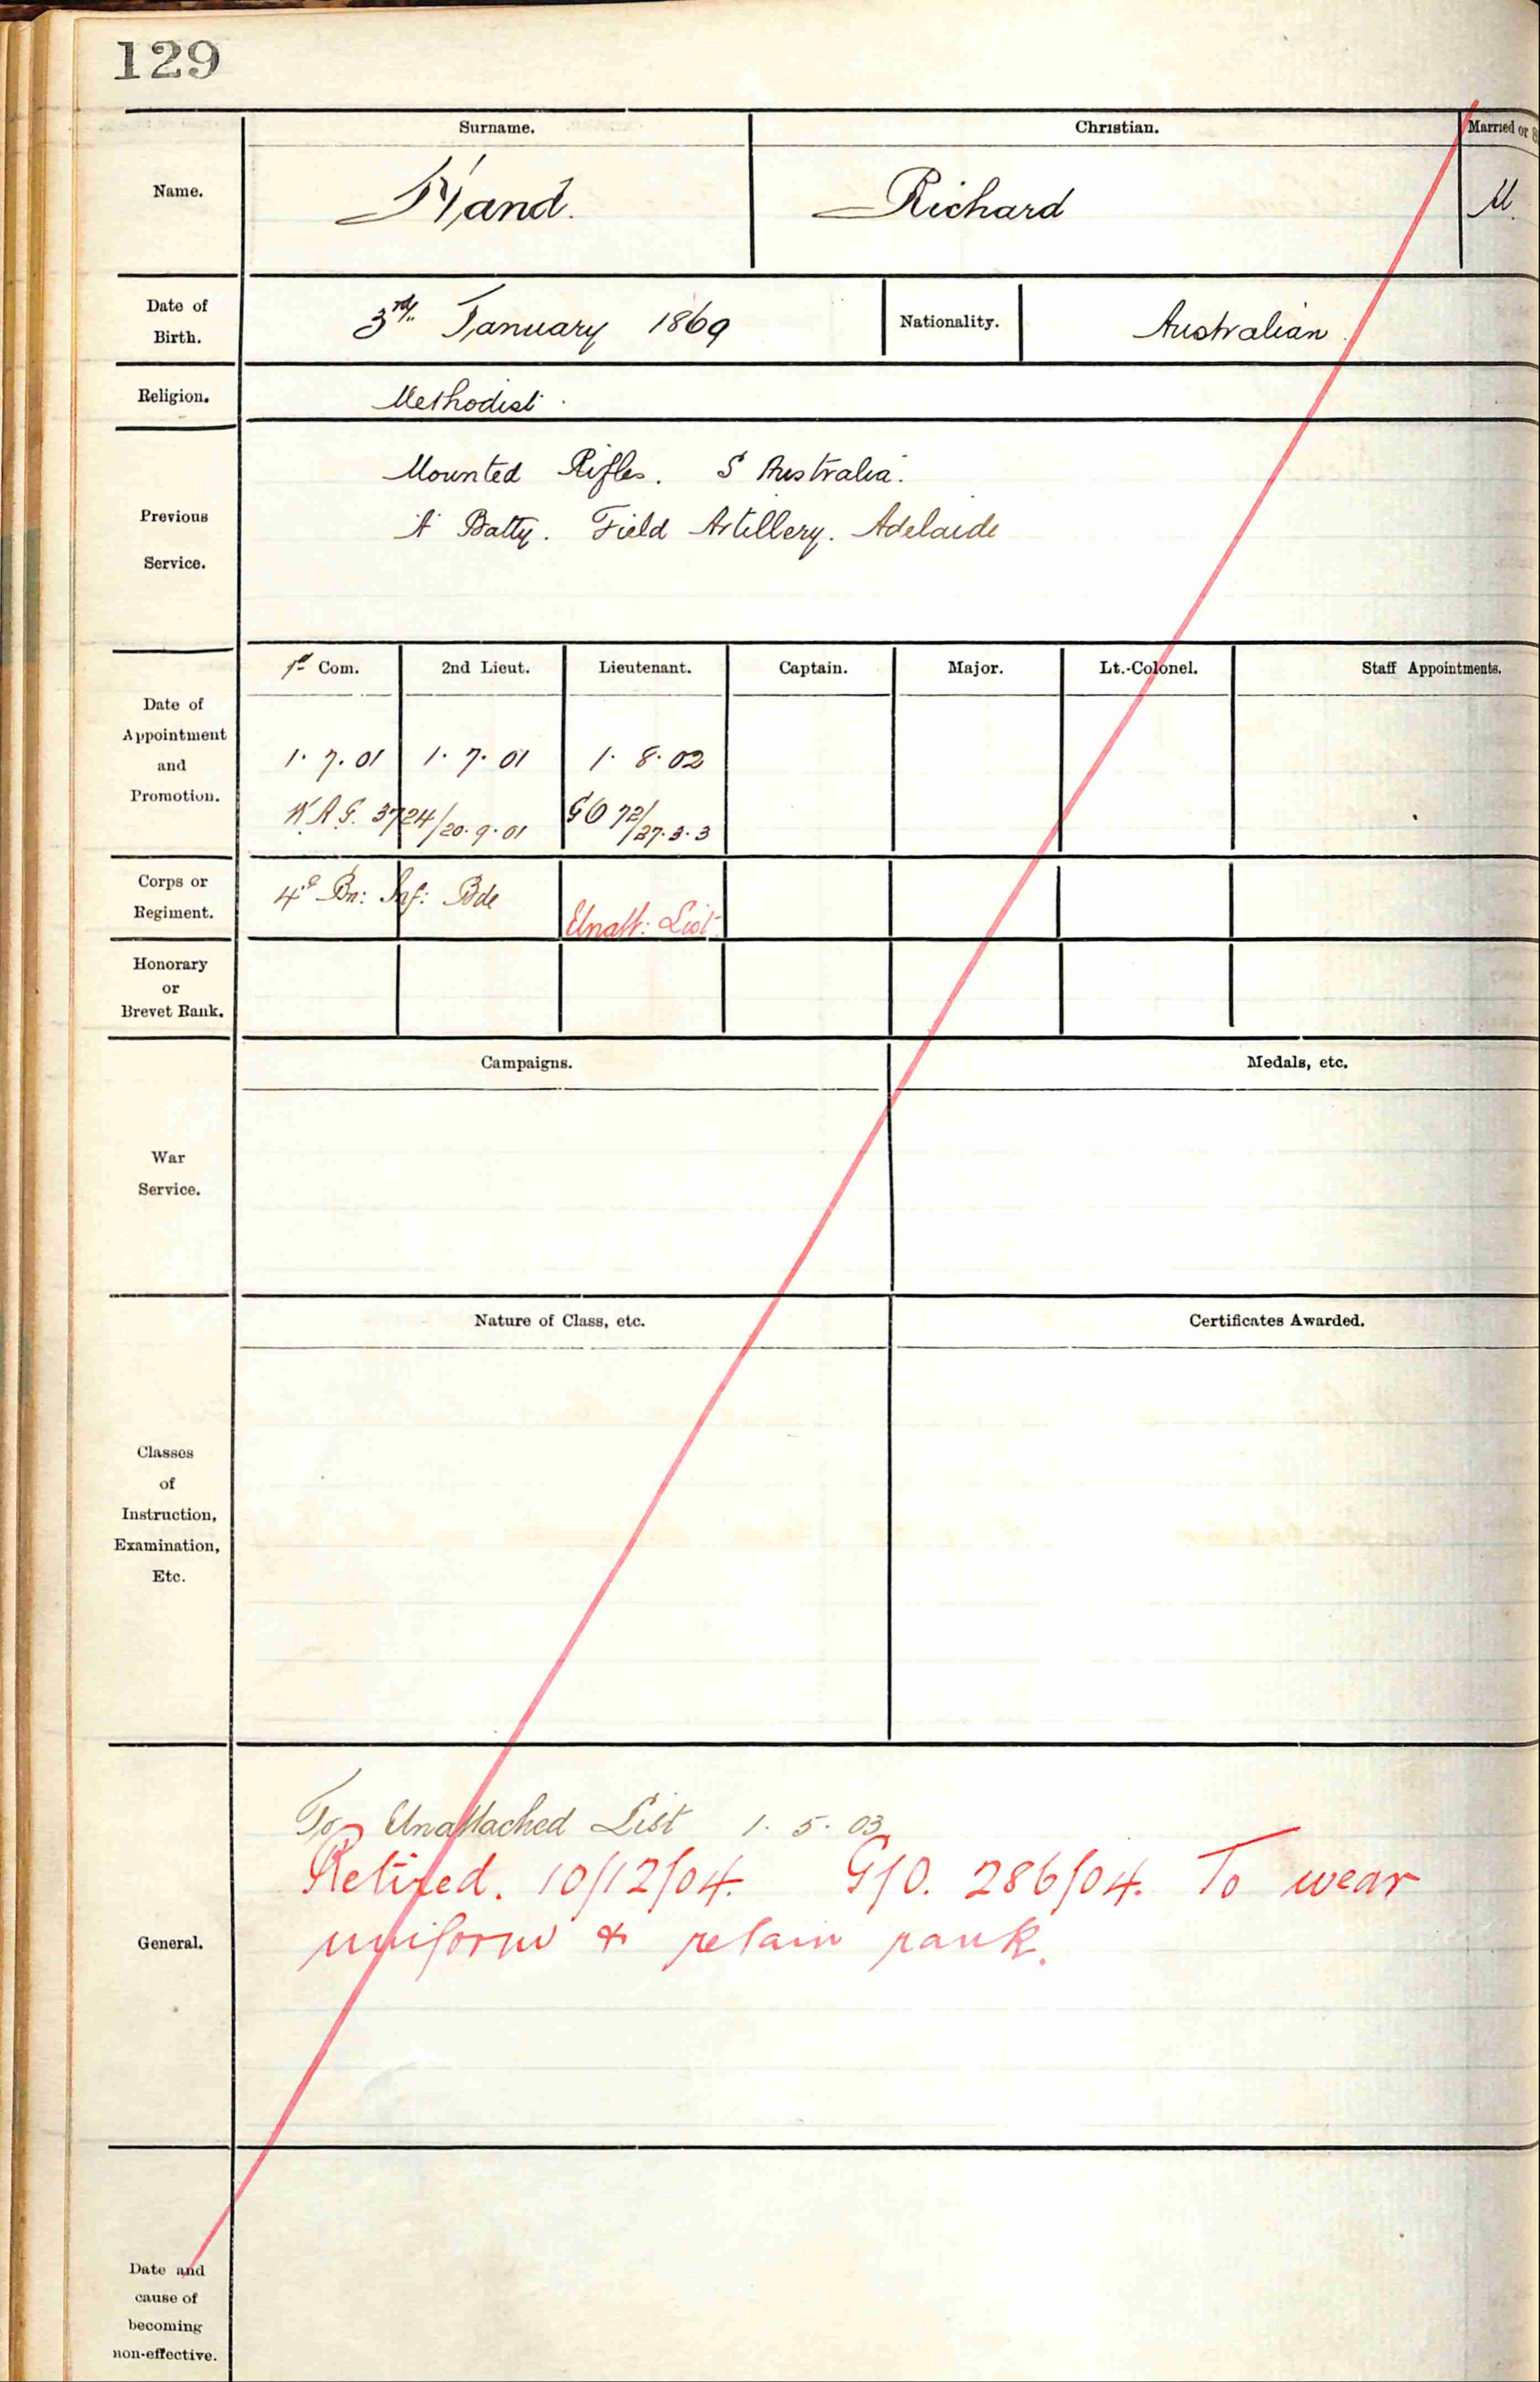 129
Surname. Christian. Married or
Name. Hand. Richard M.
Date of
Birth. 3rd. January 1869 Nationality. Australian.
Religion. Methodist.
Mounted Rifles. S Australia.
Previous
Service. A Batty. Field Artillery. Adelaide
1st Com. 2nd Lieut. Lieutenant. Captain. Major. Lt.-Colonel. Staff Appointments.
Date of
Appointment
and
Promotion.
1. 7. 01 1. 7. 01 1. 8. 02
W.A.G. 3724/20.9.01 GO 72/27.3.3
Corps or
Regiment.
4th Bn: Inf: Bde Unatt: List
Honorary
or
Brevet Rank.
Campaigns. Medals, etc.
War
Service.
Nature of Class, etc. Certificates Awarded.
Classes
of
Instruction,
Examination,
Etc.
To Unattached List 1. 5. 03
Retired. 10/12/04. G/O. 286/04. To wear
General. uniform & retain rank.
Date and
cause of
becoming
non-effective.